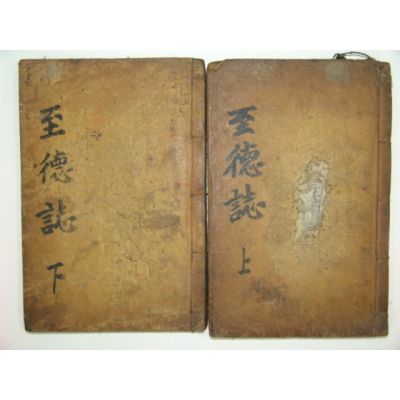 至德誌 上
至德誌 下